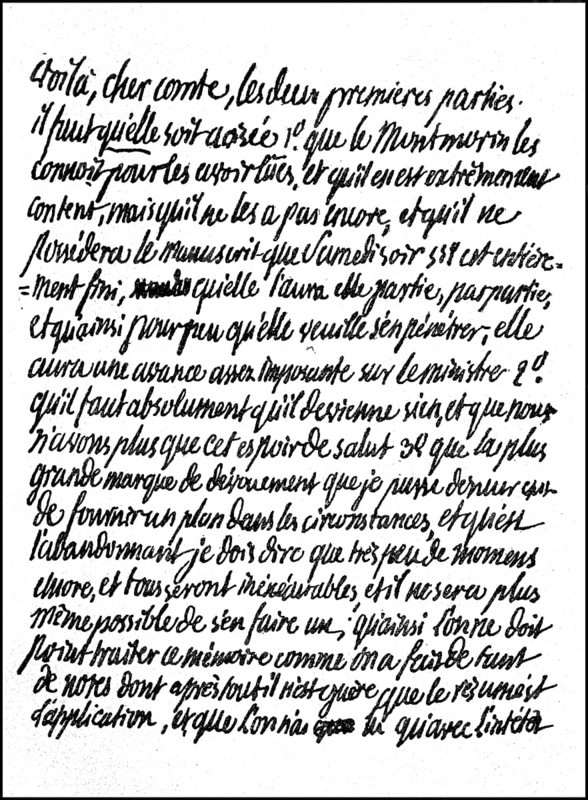 Voilà, cher comte, les deux premieres parties.
il faut qu'elle soit avisée 1º. que le Montmorin les
connoit pour les avoir lües, et qu'il en est extrêmement
content, mais qu'il ne les a pas encore, et qu'il ne
possédera le manuscrit que Samedi soir s'il est entiére=
=ment fini, qu'elle l'aura elle partie, par partie,
et qu'ainsi pour peu qu'elle veuille s'en pénétrer, elle
aura une avance assez imposante sur le ministre 2º.
qu'il faut absolument qu'il devienne sien, et que nous
n'avons plus que cet espoir de salut 3º que la plus
grande marque de dévouement que je puisse donner
de fournir un plan dans les circonstances, et qu'en
l'abandonnant je dois dire que très peu de momens
encore, et tous seront inéxécutables, et il ne sera plus
même possible de s'en faire un, qu'ainsi l'on ne doit
point traiter ce mémoire comme on a fait de tant
de notes dont après tout il n'est guère que le résumé
d'application, et que l'on n'a lu qu'avec l'intérêt